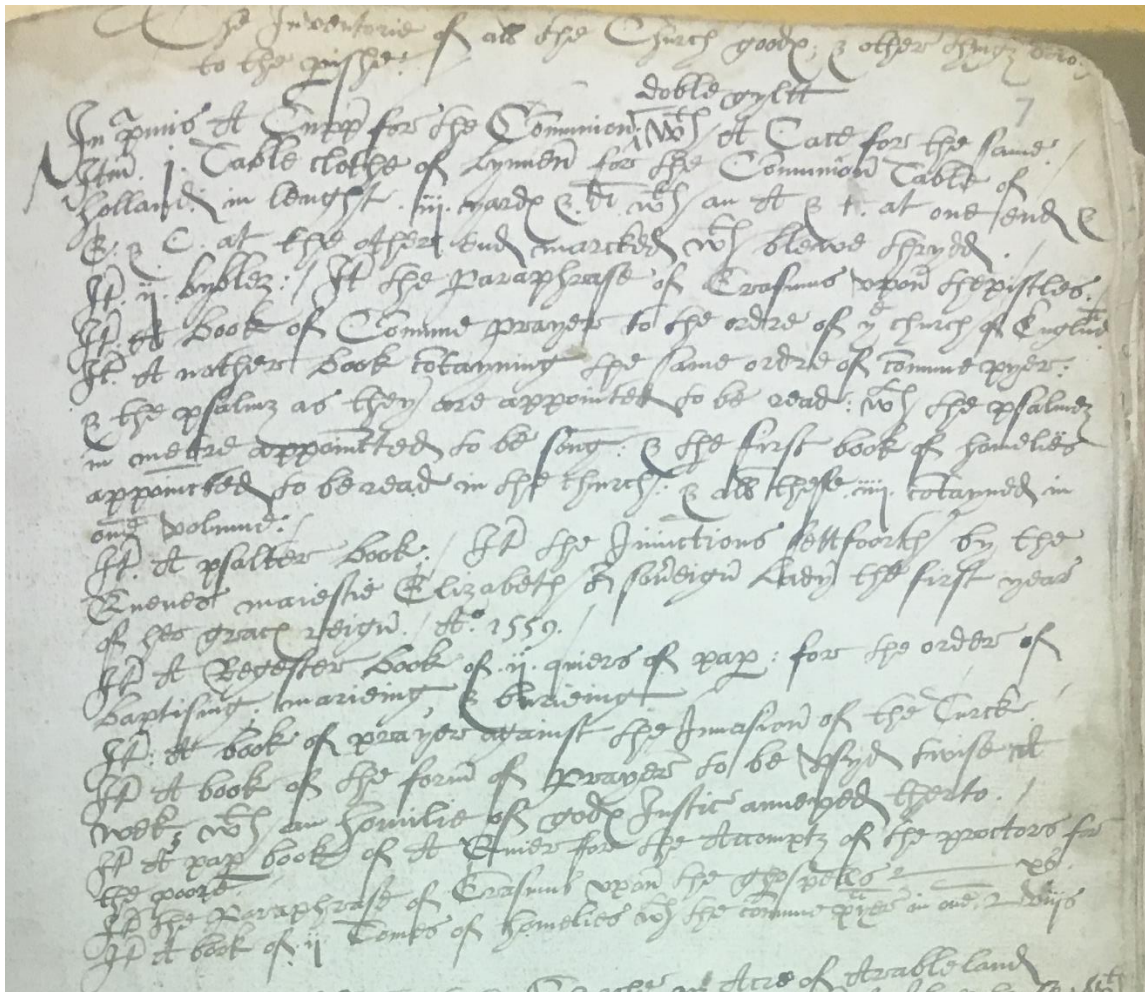 The Inventorie of all the Church goodes, & other things
to the pishe.
doble gyltt
7
In pmis A Cupp for the Communion, wth A Cace for the same.
Itm. j. Table clothe of Lynnen for the Communion Table of
holland, in lenght .iij. yardes & wth an A & t. at one end &
B. & C. at the other end marcked wth blewe thrydd.
It. ij. bybles. / It the Paraphrase of Erasmus upon thepistles.
It. A book of Commune prayer to the ordre of ye church of
It. A nother book cotayning the same ordre of commune pyer:
& the psalmz as they are appointed to be read: wth the psalmez
in metre appointted to be song. & the first book of homelies
appoincted to be read in the church: & all these .iiij. cotayned in
one volume.
It. A psalter book: / It the Iniuctions settfoorth by the
Quenes maiestie Elizabeth or soveign Lady the first year
of her graces reign. / Ao. 1559.
It A Regester book of .ij. quiers of pap: for the order of
baptising, marieing, & burieing
It: A book of prayer against the Invasion of the Turck.
It A book of the form of Prayer to be usyd twise A
wek, wth an homilie of godes Iustic annexed therto.
It A pap book of A Quier for the Accomptz of the proctors for
the poore.
It the Paraphrase of Erasmus upon the gospells
It A book of .ij. Tomes of homelies wth the commune pyer in one.
Acre of Arable land